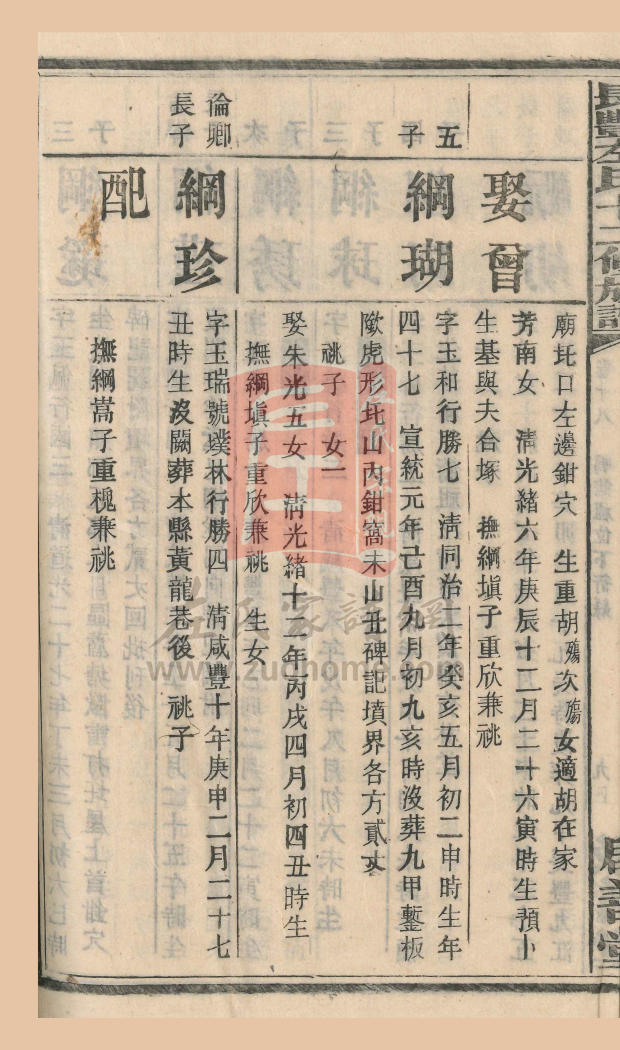 長豐左氏十二修族譜
娶曾
廟圫口左邊鉗穴 生重胡殤次殤女適胡在家
芳南女 清光緒六年庚辰十二月二十六寅時生預卜
生基與夫合塚 撫綱塡子重欣兼祧
五
子
綱瑚
字玉和行勝七 清同治二年癸亥五月初二申時生年
四十七 宣統元年己酉九月初九亥時沒葬九甲鏨板
隊虎形圫山內鉗窩未山丑碑記墳界各方貳丈
祧子 女一
娶朱光五女 清光緒十二年丙戌四月初四丑時生
撫綱塡子重欣兼祧 生女
倫卿
長子
綱珍
字玉瑞號璞林行勝四 清咸豐十年庚申二月二十七
丑時生沒闕葬本縣黃龍巷後 祧子
配
撫綱嵩子重槐兼祧
左氏家譜網
www.zuohome.com